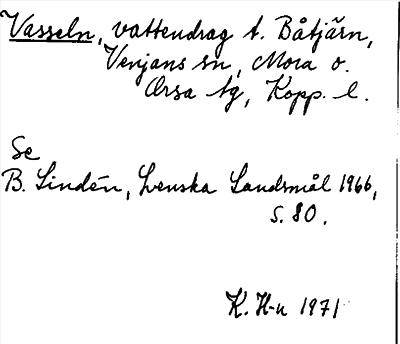 Vasseln, vattendrag t. Båtjärn,
Venjans sn, Mora o.
Orsa tg, Kopp. l.
Se
B. Lindén, Svenska Landsmål 1966,
s. 80.
K. H-n 1971